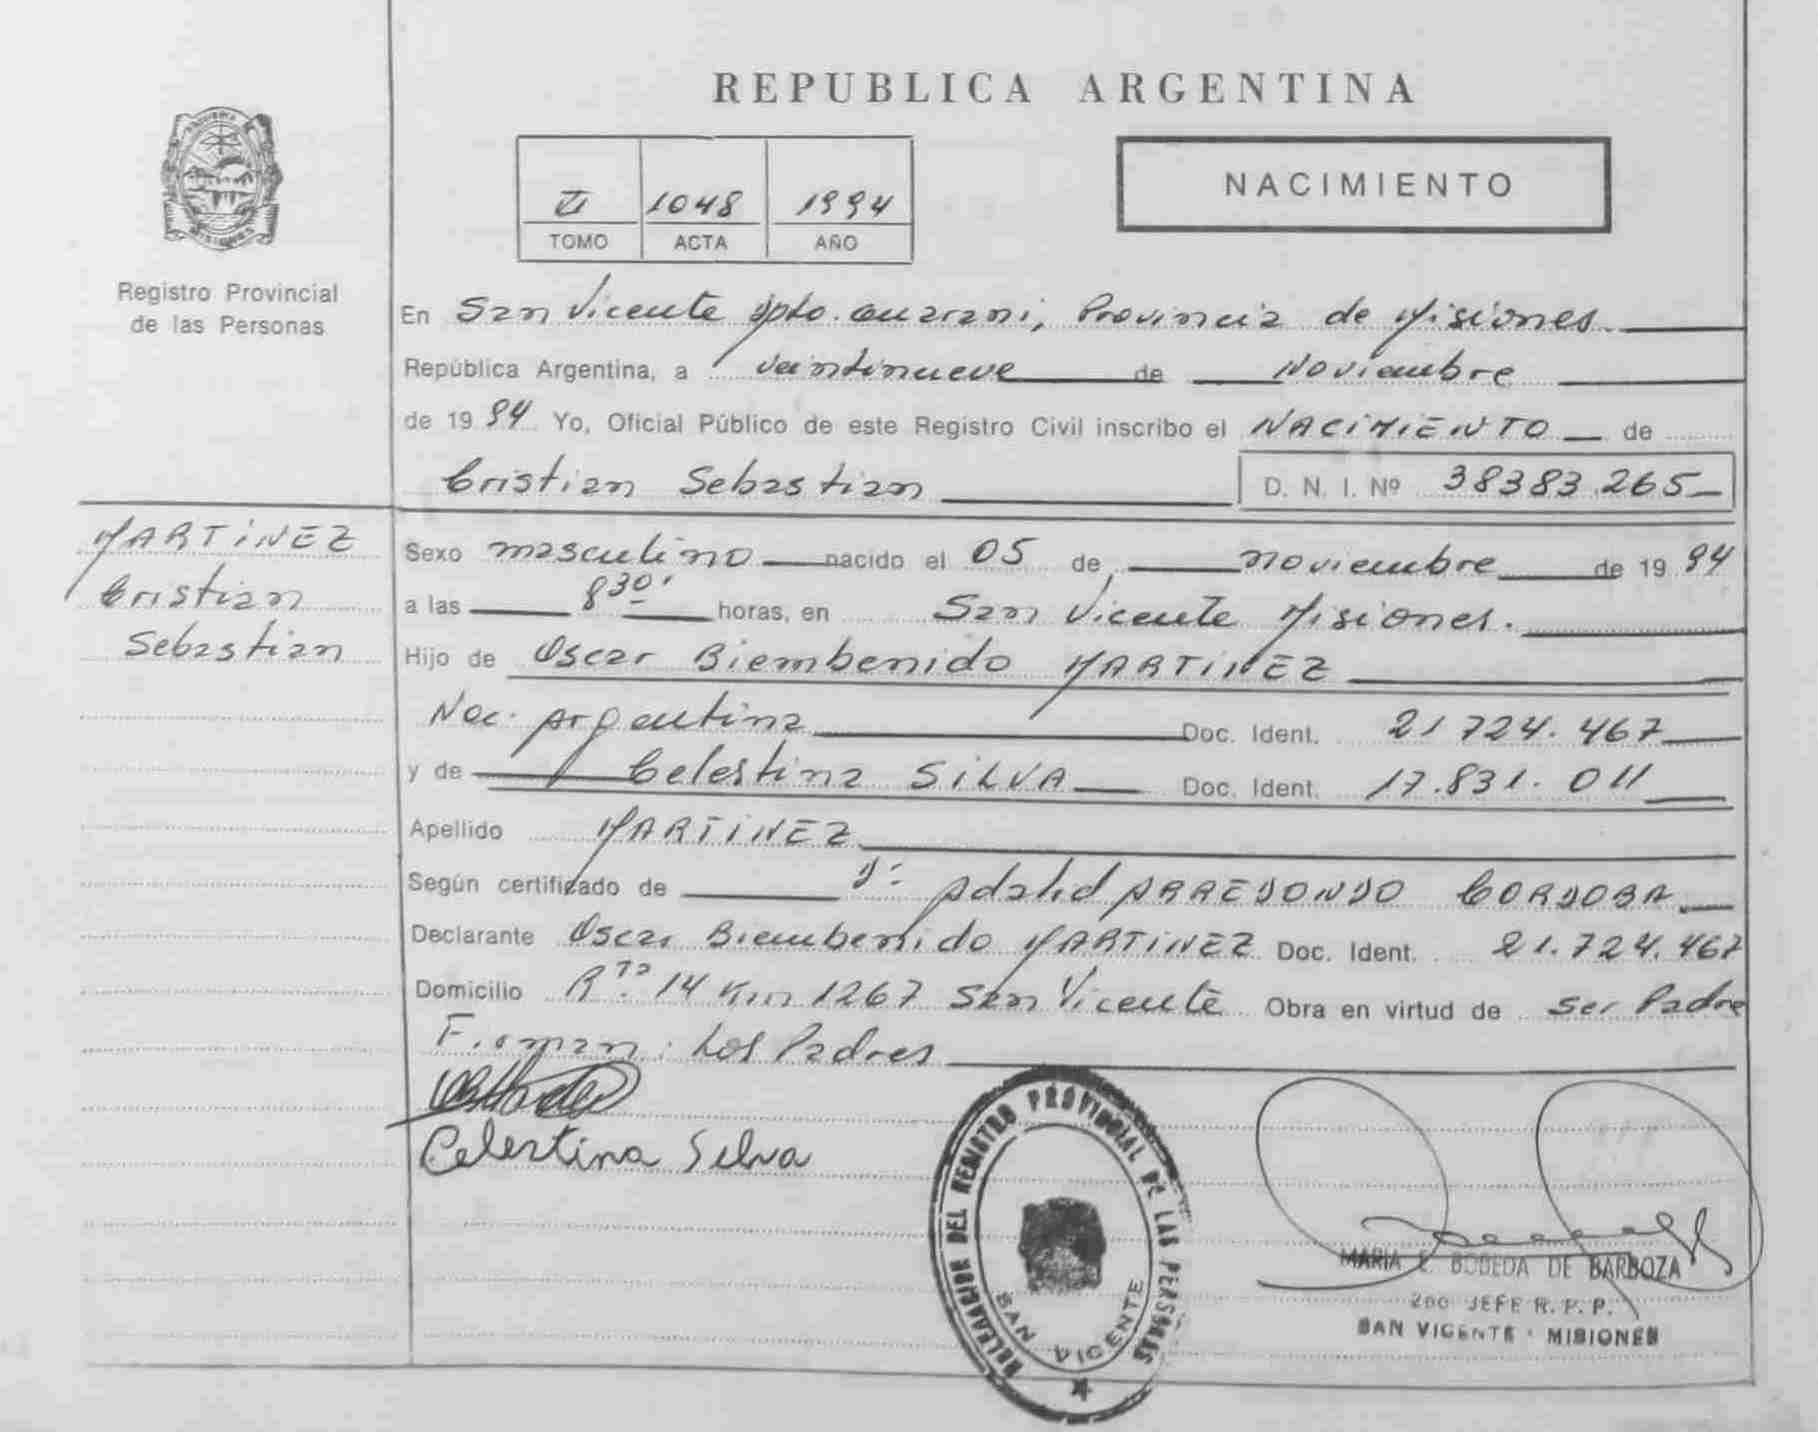 REPUBLICA ARGENTINA
NACIMIENTO
II 1048 1994
TOMO ACTA AÑO
Registro Provincial
de las Personas
En San Vicente Dpto. Guarani, Provincia de Misiones
República Argentina, a veintinueve de Noviembre
de 1994 Yo, Oficial Público de este Registro Civil inscribo el NACIMIENTO de
Cristian Sebastian D. N. I. Nº 38383.265
MARTINEZ
Cristian
Sebastian
Sexo masculino nacido el 05 de noviembre de 1994
a las 8 30' horas, en San Vicente Misiones.
Hijo de Oscar Biembenido MARTINEZ
Nac. Argentina Doc. Ident. 21 724.467
y de Celestina SILVA Doc. Ident. 17.831.011
Apellido MARTINEZ
Según certificado de Adalid ARREDONDO CORDOBA
Declarante Oscar Biembenido MARTINEZ Doc. Ident. 21.724.467
Domicilio 14 Km 1267 San Vicente Obra en virtud de ser Padre
Firman: Los Padres
Celestina Silva
DELEGACION DEL REGISTRO PROVINCIAL DE LAS PERSONAS
SAN VICENTE
MARIA E. BOBEDA DE BARBOZA
2do JEFE R. P. P.
SAN VICENTE - MISIONES